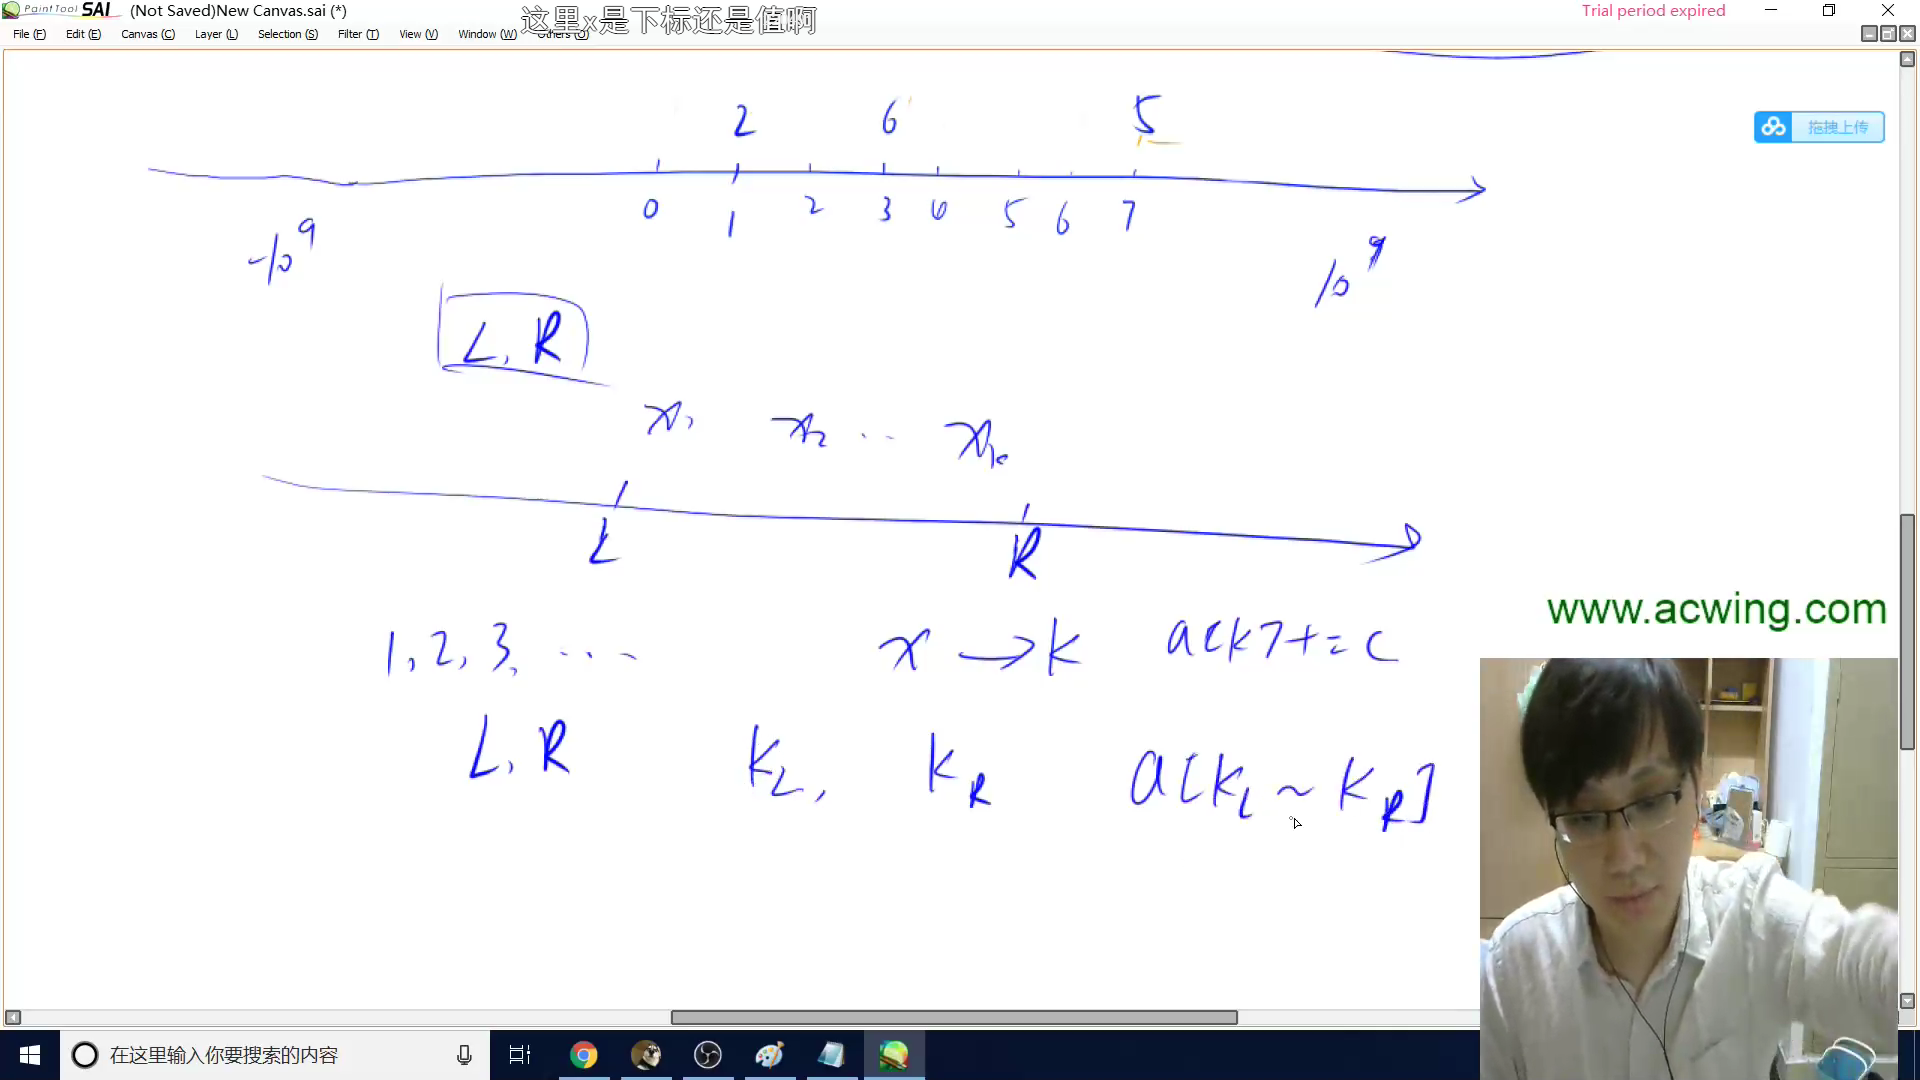 PaintTool SAI (Not Saved)New Canvas.sai (*)
这里x是下标还是值啊
Trial period expired
File (F) Edit (E) Canvas (C) Layer (L) Selection (S) Filter (T) View (V) Window (W) Others (O)
2 6 5
拖拽上传
0 1 2 3 4 5 6 7
-10^9 10^9
L, R
x₁ x₂ ... xₖ
L R
www.acwing.com
1, 2, 3, ... x → k a[k]+=c
L, R k_L, k_R a[k_L ~ k_R]
在这里输入你要搜索的内容